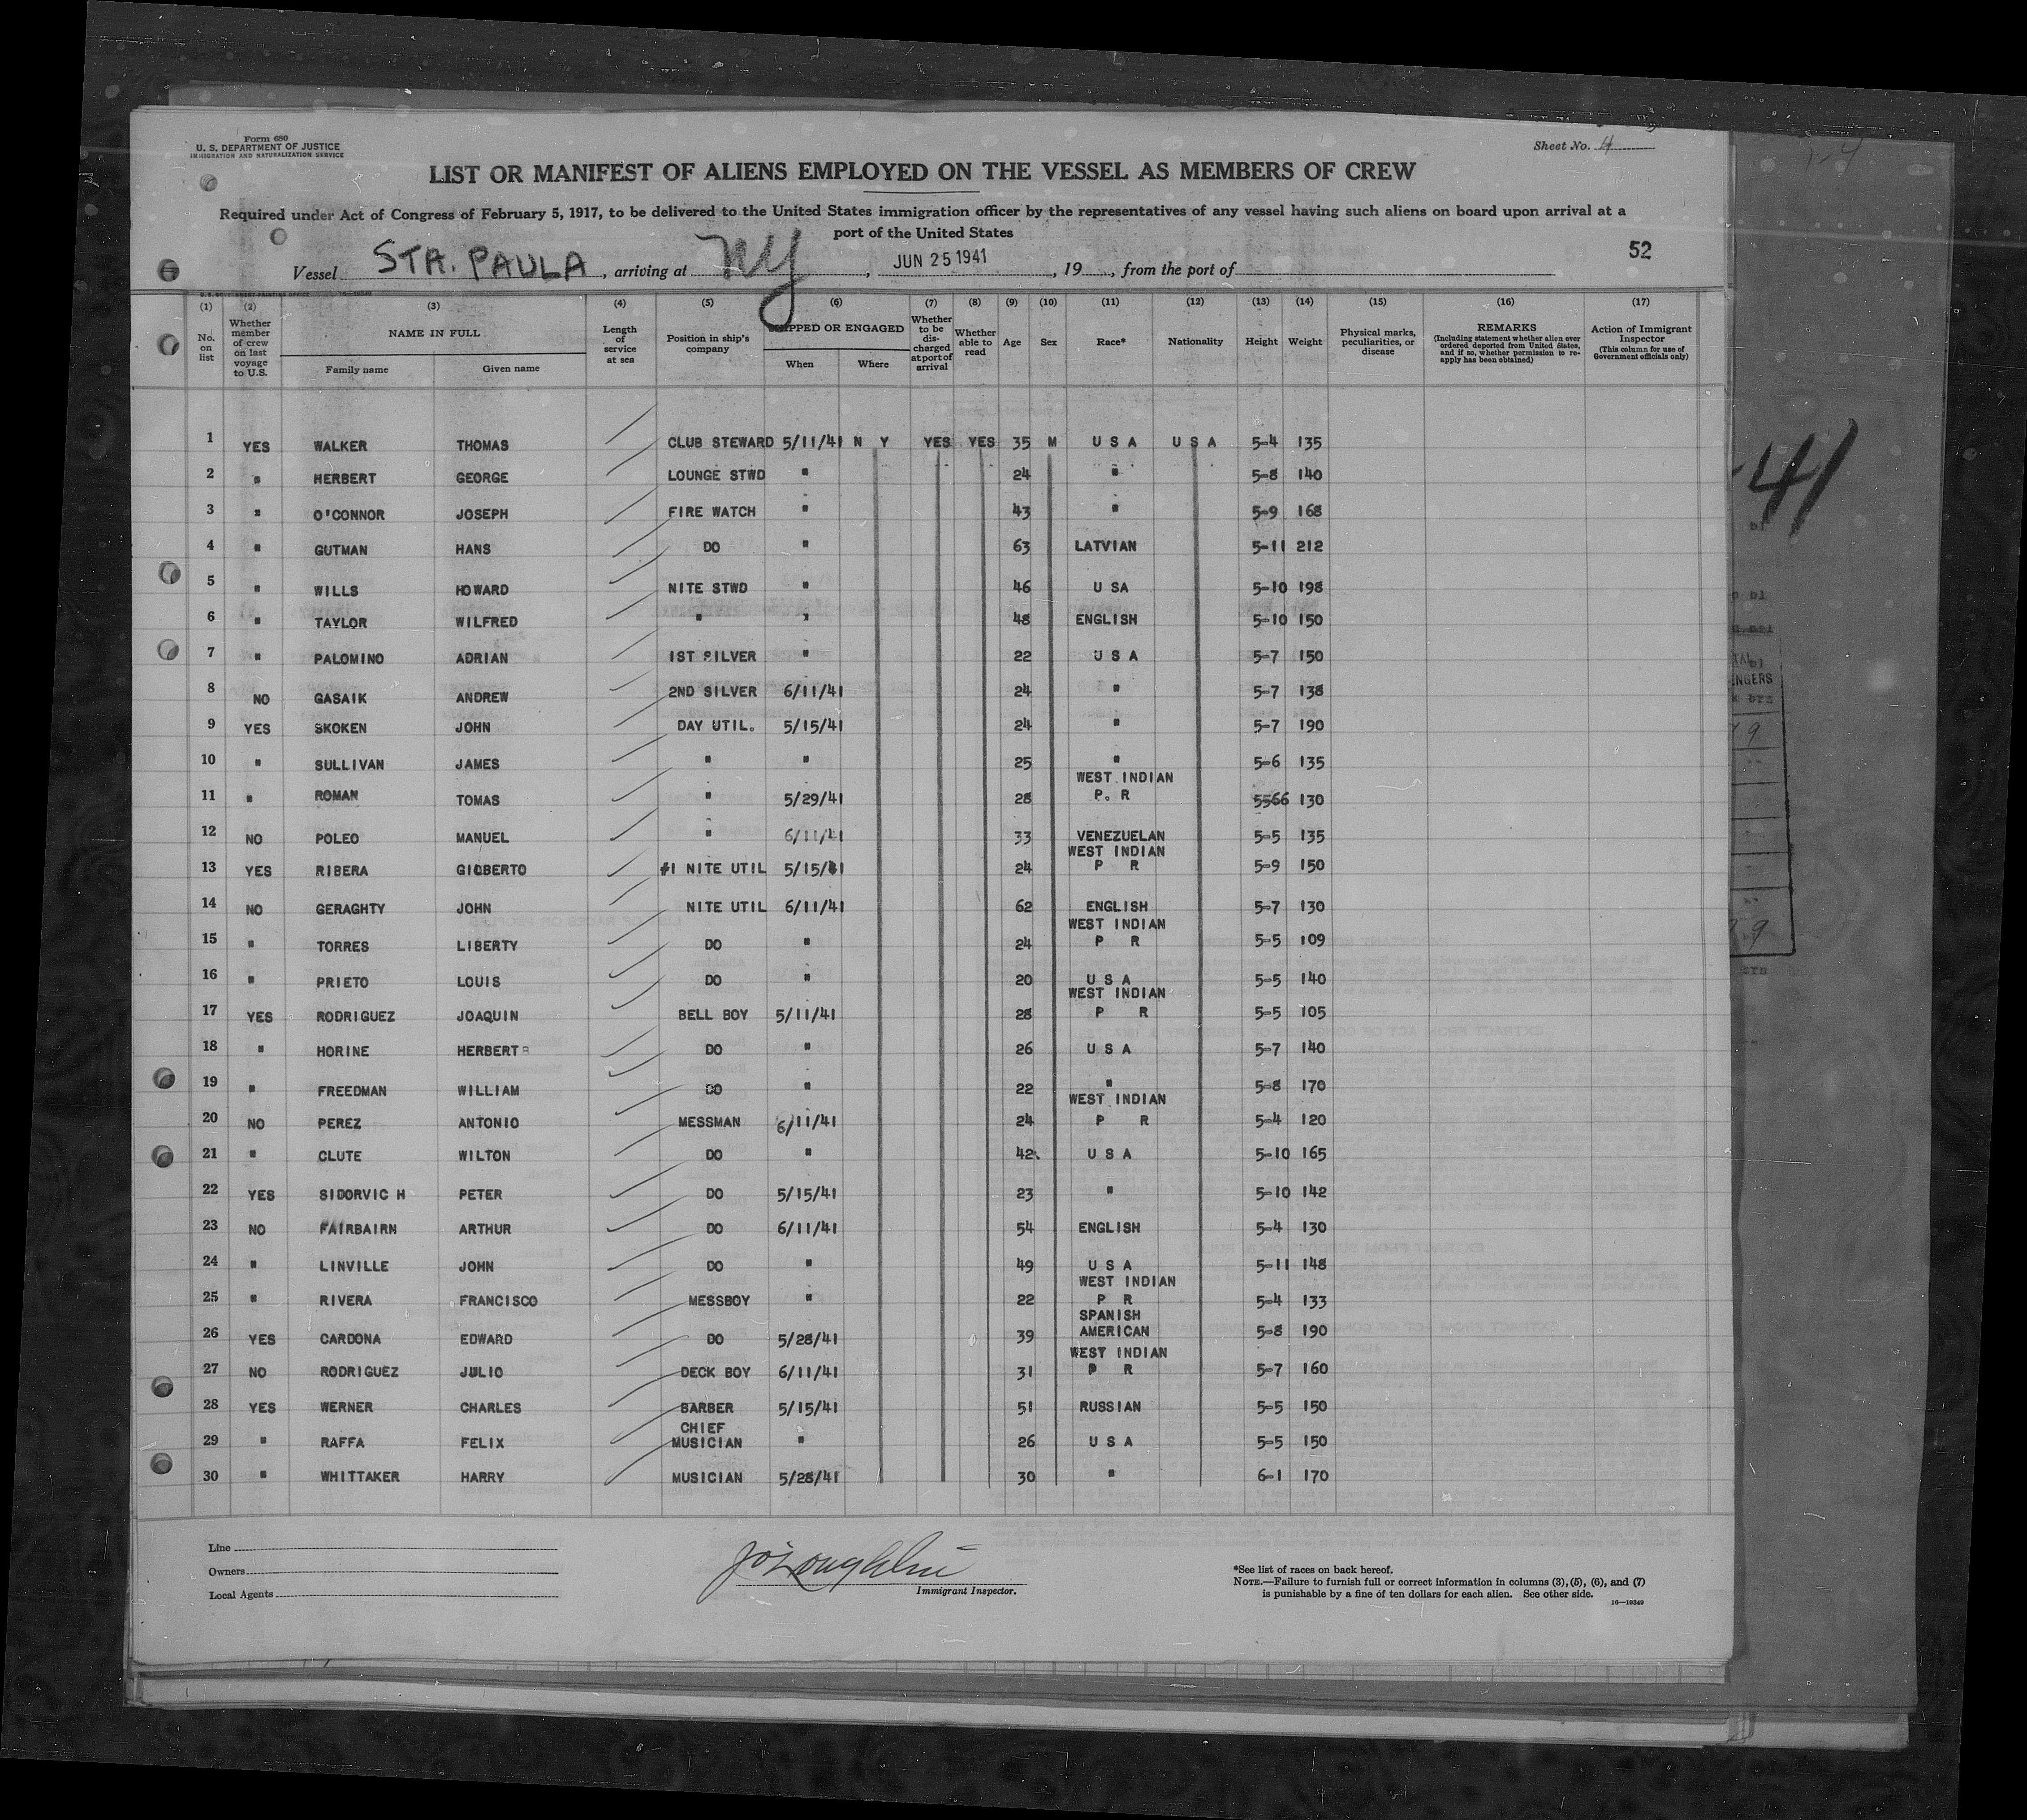 Form 680
U. S. DEPARTMENT OF JUSTICE
IMMIGRATION AND NATURALIZATION SERVICE
Sheet No. 4
LIST OR MANIFEST OF ALIENS EMPLOYED ON THE VESSEL AS MEMBERS OF CREW
Required under Act of Congress of February 5, 1917, to be delivered to the United States immigration officer by the representatives of any vessel having such aliens on board upon arrival at a
port of the United States
52
Vessel STA. PAULA, arriving at NY, JUN 25 1941, 19, from the port of
(1) (2) (3) (4) (5) (6) (7) (8) (9) (10) (11) (12) (13) (14) (15) (16) (17)
No. on list
Whether member of crew on last voyage to U.S.
NAME IN FULL
Family name
Given name
Length of service at sea
Position in ship's company
SHIPPED OR ENGAGED
When
Where
Whether to be discharged at port of arrival
Whether able to read
Age
Sex
Race*
Nationality
Height
Weight
Physical marks, peculiarities, or disease
REMARKS
(Including statement whether alien ever ordered deported from United States, and if so, whether permission to reapply has been obtained)
Action of Immigrant Inspector
(This column for use of Government officials only)
1 YES WALKER THOMAS CLUB STEWARD 5/11/41 N Y YES YES 35 M U S A U S A 5-4 135
2 " HERBERT GEORGE LOUNGE STWD " 24 " 5-8 140
3 " O'CONNOR JOSEPH FIRE WATCH " 43 " 5-9 168
4 " GUTMAN HANS DO " 63 LATVIAN 5-11 212
5 " WILLS HOWARD NITE STWD " 46 U SA 5-10 198
6 " TAYLOR WILFRED " " 48 ENGLISH 5-10 150
7 " PALOMINO ADRIAN 1ST SILVER " 22 U S A 5-7 150
8 NO GASAIK ANDREW 2ND SILVER 6/11/41 24 " 5-7 138
9 YES SKOKEN JOHN DAY UTIL. 5/15/41 24 " 5-7 190
10 " SULLIVAN JAMES " " 25 " 5-6 135
11 " ROMAN TOMAS " 5/29/41 28 WEST INDIAN P. R 5566 130
12 NO POLEO MANUEL " 6/11/41 33 VENEZUELAN 5-5 135
13 YES RIBERA GILBERTO #1 NITE UTIL 5/15/41 24 WEST INDIAN P R 5-9 150
14 NO GERAGHTY JOHN NITE UTIL 6/11/41 62 ENGLISH 5-7 130
15 " TORRES LIBERTY DO " 24 WEST INDIAN P R 5-5 109
16 " PRIETO LOUIS DO " 20 U S A 5-5 140
17 YES RODRIGUEZ JOAQUIN BELL BOY 5/11/41 28 WEST INDIAN P R 5-5 105
18 " HORINE HERBERT DO " 26 U S A 5-7 140
19 " FREEDMAN WILLIAM DO " 22 " 5-8 170
20 NO PEREZ ANTONIO MESSMAN 6/11/41 24 WEST INDIAN P R 5-4 120
21 " CLUTE WILTON DO " 42 U S A 5-10 165
22 YES SIDORVIC H PETER DO 5/15/41 23 " 5-10 142
23 NO FAIRBAIRN ARTHUR DO 6/11/41 54 ENGLISH 5-4 130
24 " LINVILLE JOHN DO " 49 U S A 5-11 148
25 " RIVERA FRANCISCO MESSBOY " 22 WEST INDIAN P R 5-4 133
26 YES CARDONA EDWARD DO 5/28/41 39 SPANISH AMERICAN 5-8 190
27 NO RODRIGUEZ JULIO DECK BOY 6/11/41 31 WEST INDIAN P R 5-7 160
28 YES WERNER CHARLES BARBER 5/15/41 51 RUSSIAN 5-5 150
29 " RAFFA FELIX CHIEF MUSICIAN " 26 U S A 5-5 150
30 " WHITTAKER HARRY MUSICIAN 5/28/41 30 " 6-1 170
Line
Owners
Local Agents
Immigrant Inspector.
*See list of races on back hereof.
NOTE.—Failure to furnish full or correct information in columns (3), (5), (6), and (7)
is punishable by a fine of ten dollars for each alien. See other side.
16—19349
41